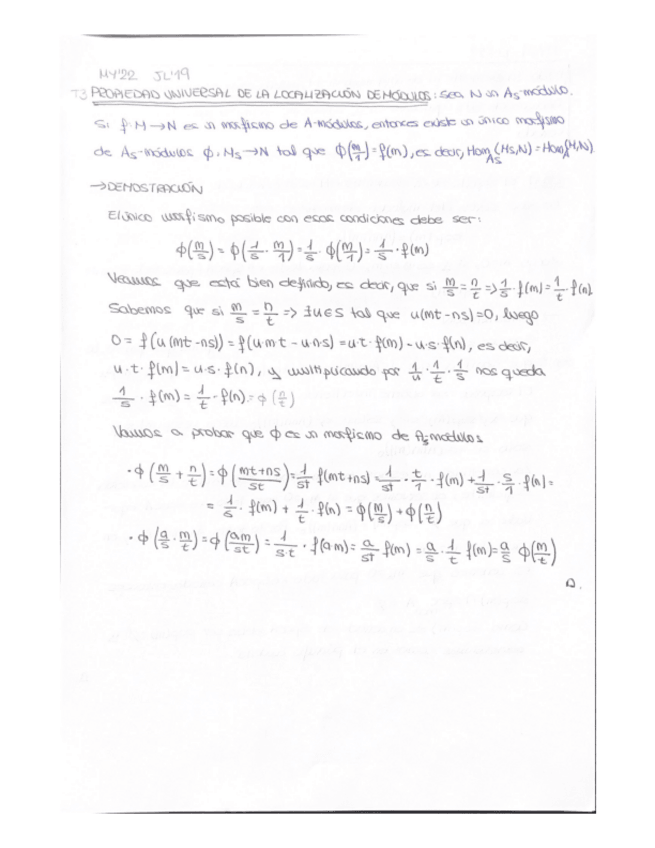 MY'22 JL'19
T3 PROPIEDAD UNIVERSAL DE LA LOCALIZACIÓN DE MÓDULOS: Sea N un A_S-módulo.
Si f: M→N es un morfismo de A-módulos, entonces existe un único morfismo
de A_S-módulos ϕ: M_S→N tal que ϕ(m/1) = f(m), es decir, Hom_{A_S}(M_S,N) = Hom_A(M,N)
→DEMOSTRACIÓN
El único morfismo posible con esas condiciones debe ser:
ϕ(m/s) = ϕ(1/s · m/1) = 1/s · ϕ(m/1) = 1/s · f(m)
Veamos que está bien definido, es decir, que si m/s = n/t => 1/s · f(m) = 1/t · f(n).
Sabemos que si m/s = n/t => ∃u∈S tal que u(mt-ns)=0, luego
0 = f(u(mt-ns)) = f(u·m·t - u·n·s) = u·t·f(m) - u·s·f(n), es decir,
u·t·f(m) = u·s·f(n), y multiplicando por 1/u · 1/t · 1/s nos queda
1/s · f(m) = 1/t · f(n) = ϕ(n/t)
Vamos a probar que ϕ es un morfismo de A_S módulos
· ϕ(m/s + n/t) = ϕ((mt+ns)/st) = 1/st f(mt+ns) = 1/st · t/1 · f(m) + 1/st · s/1 · f(n) =
= 1/s · f(m) + 1/t · f(n) = ϕ(m/s) + ϕ(n/t)
· ϕ(a/s · m/t) = ϕ(am/st) = 1/s·t · f(am) = a/st f(m) = a/s · 1/t f(m) = a/s ϕ(m/t)
□.